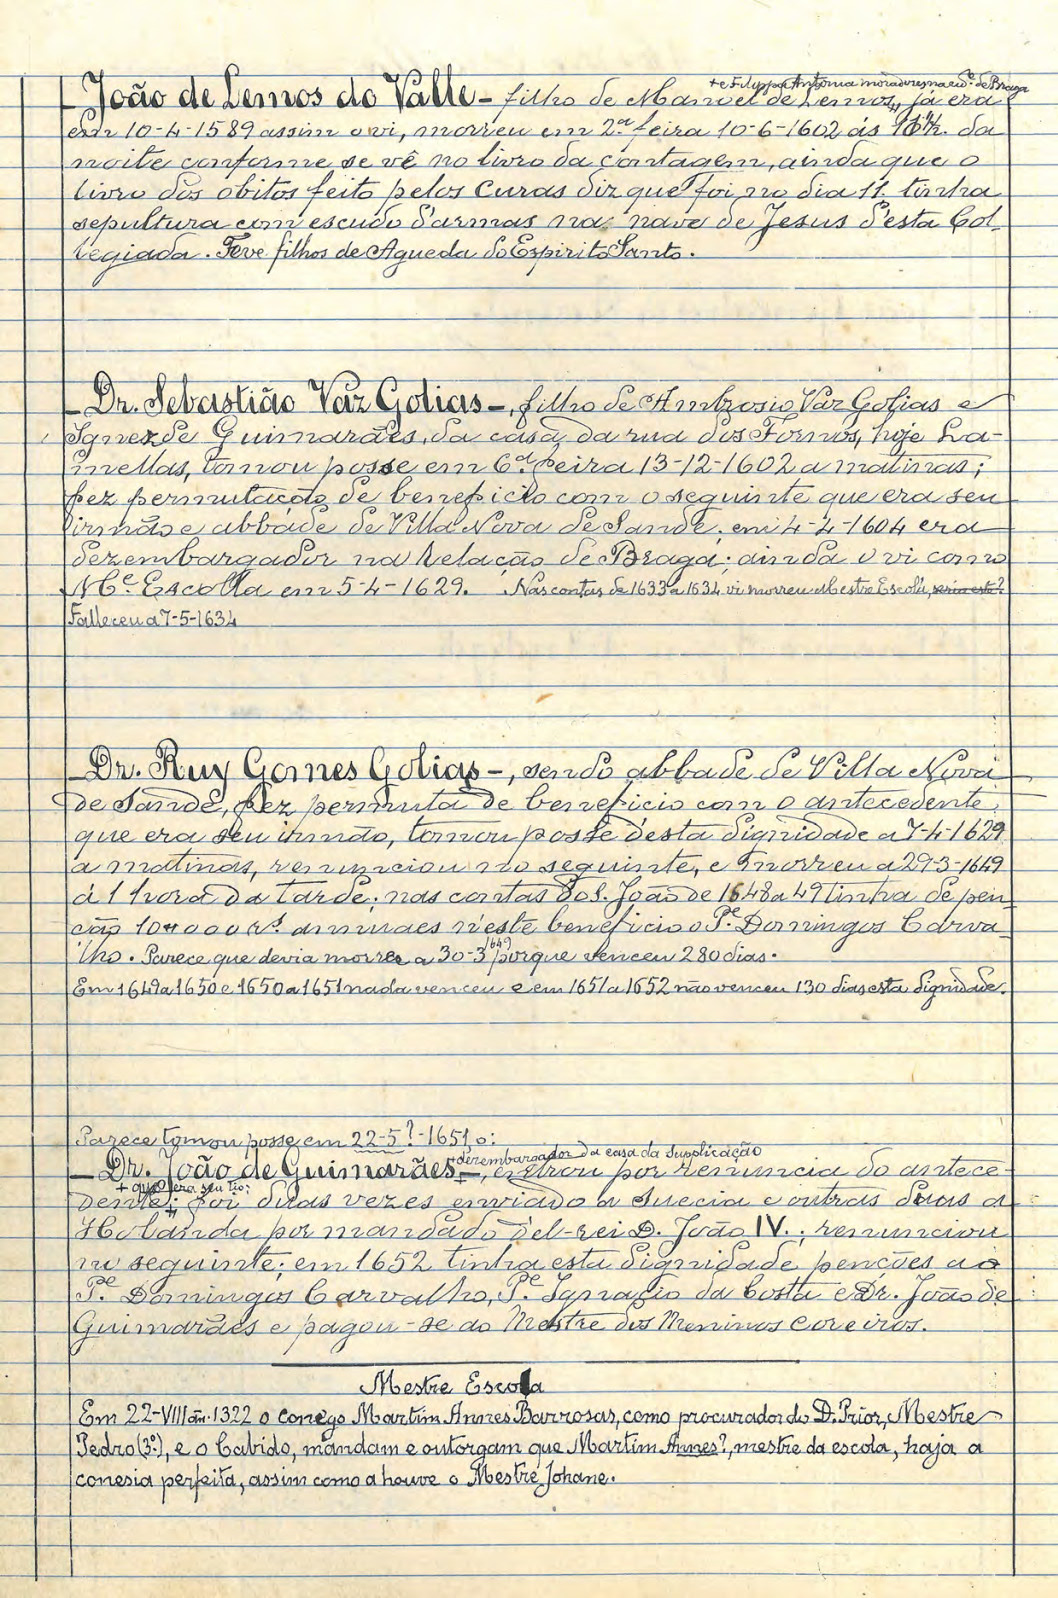 + e Filippa Antonia moradores na cid.e de Braga
João de Lemos do Valle - filho de Manoel de Lemos, já era
em 10-4-1589 assim o vi, morreu em 2.ª feira 10-6-1602 ás da
noite conforme se vê no livro da contagem, ainda que o
livro dos obitos feito pelos curas diz que foi no dia 11, tinha
sepultura com escudo d'armas na nave de Jesus d'esta Col-
legiada. Teve filhos de Agueda do Espirito Santo.
Dr. Sebastião Vaz Golias -, filho de Ambrosio Vaz Golias e
Ignez de Guimarães, da casa da rua dos Fornos, hoje La-
mellas, tomou posse em 6.ª feira 13-12-1602 a matinas;
fez permutação de beneficio com o seguinte que era seu
irmão e abbade de Villa Nova de Sande; em 4-4-1604 era
dezembargador na Relação de Braga; ainda o vi como
M.e Escolla em 5-4-1629. Nas contas de 1633 a 1634 vi morreu Mestre Escola, seria este?
Falleceu a 7-5-1634
Dr. Ruy Gomes Golias -, sendo abbade de Villa Nova
de Sande, fez permuta de beneficio com o antecedente,
que era seu irmão, tomou posse d'esta dignidade a 7-4-1629
a matinas, renunciou no seguinte, e morreu a 29-3-1649
á 1 hora da tarde; nas contas do S. João de 1648 a 49 tinha de pen-
ção 10000 rs. annuaes n'este beneficio o P.e Domingos Carva-
lho. Parece que devia morrer a 30-3-1649 porque venceu 280 dias.
Em 1649 a 1650 e 1650 a 1651 nada venceu e em 1651 a 1652 não venceu 130 dias esta dignidade.
Parece tomou posse em 22-5?-1651 o:
+ dezembargador da casa da Supplicação
Dr. João de Guimarães -, entrou por renuncia do antece-
+ que era seu tio;
dente; foi duas vezes enviado a Suecia e outras duas a
Holanda por mandado d'el-rei D. João IV.; renunciou
no seguinte; em 1652 tinha esta dignidade penções ao
P.e Domingos Carvalho, P.e Ignacio da Costa e Dr. João de
Guimarães e pagou-se ao Mestre dos Meninos Coreiros.
Mestre Escola
Em 22-VIII an. 1322 o conego Martim Annes Barrosas, como procurador do D. Prior, Mestre
Pedro (3.º), e o Cabido, mandam e outorgam que Martim Annes?, mestre da escola, haja a
conesia perfeita, assim como a houve o Mestre Johane.